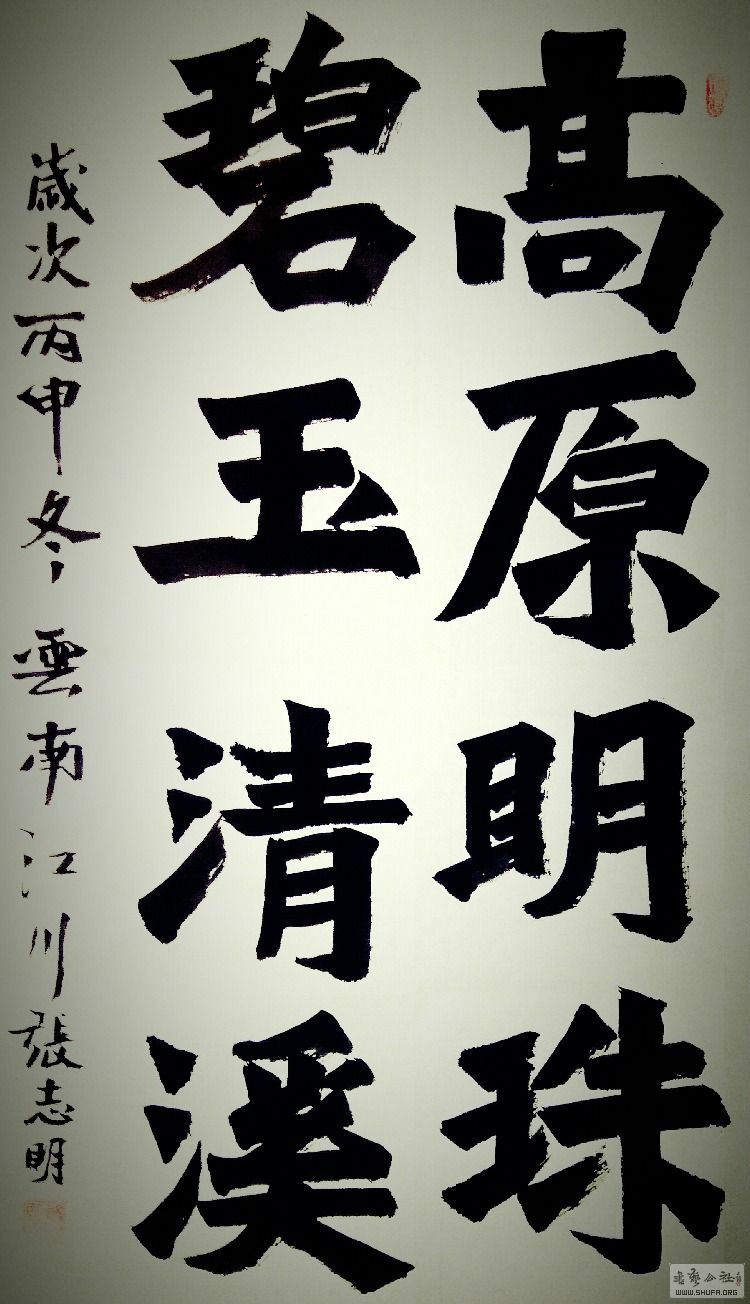 高原明珠
碧玉清溪
歲次丙申冬雲南江川張志明
書藝公社
WWW.SHUFA.ORG